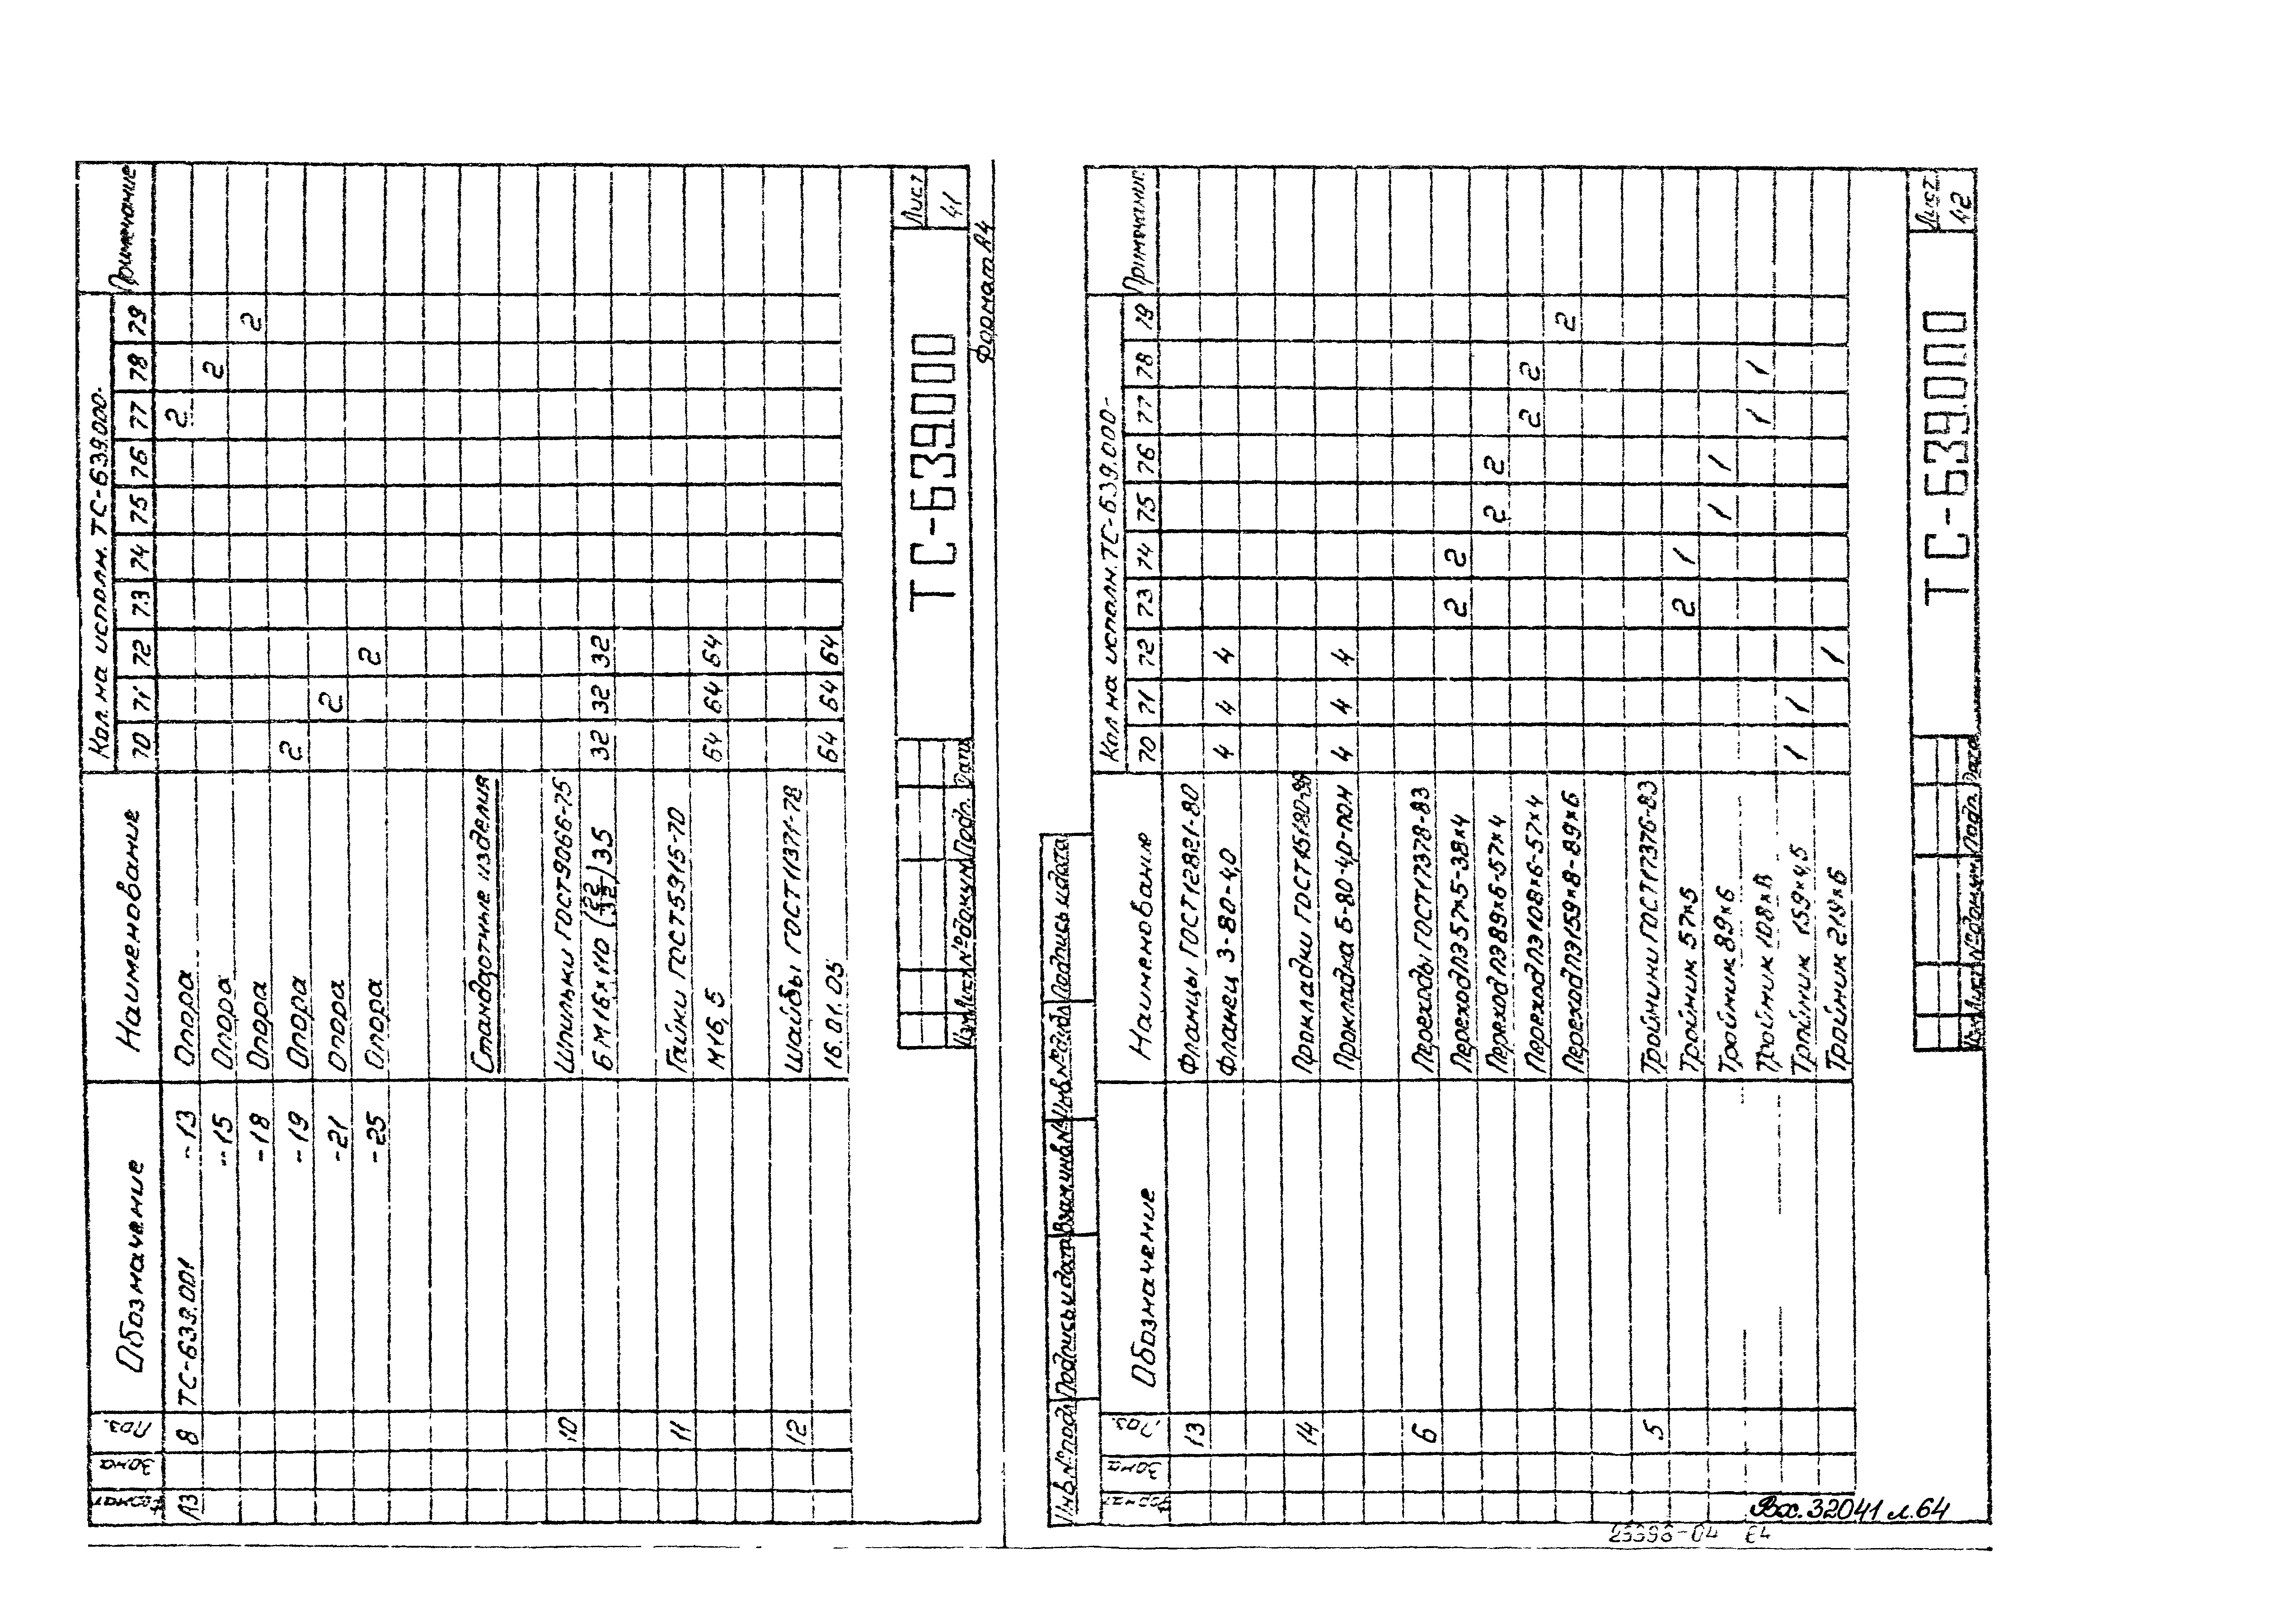 Формат Зона Поз. Обозначение Наименование Кол. на исполн. ТС-639.000- Примечание
70 71 72 73 74 75 76 77 78 79
А3 8 ТС-639.001 -13 Опора 2
-15 Опора 2
-18 Опора 2
-19 Опора 2
-21 Опора 2
-25 Опора 2
Стандартные изделия
10 Шпильки ГОСТ 9066-75
БМ16×110 35 32 32 32
11 Гайки ГОСТ 5915-70
М16,5 64 64 64
12 Шайбы ГОСТ 11371-78
16.01.05 64 64 64
Изм. Лист № докум. Подп. Дата
ТС-639.000
Лист
41
Формат А4
Инв.№ подл. Подпись и дата Взам.инв.№ Инв.№ дубл. Подпись и дата
Формат Зона Поз. Обозначение Наименование Кол на исполн. ТС-639.000- Примечание
70 71 72 73 74 75 76 77 78 79
13 Фланцы ГОСТ 12821-80
Фланец 3-80-4,0 4 4 4
14 Прокладки ГОСТ
Прокладка Б-80-4,0-ПОН 4 4 4
6 Переходы ГОСТ 17378-83
Переход ПЭ 57×5-38×4 2 2
Переход ПЭ 89×6-57×4 2 2
Переход ПЭ 108×6-57×4 2 2
Переход ПЭ 159×8-89×6 2
5 Тройники ГОСТ 17376-83
Тройник 57×5 2 1
Тройник 89×6 1 1
Тройник 108× 1 1
Тройник 159×4,5 1 1
Тройник 219×6 1
Изм. Лист № докум. Подп. Дата
ТС-639.000
Лист
42
Вх. 32041 л. 64